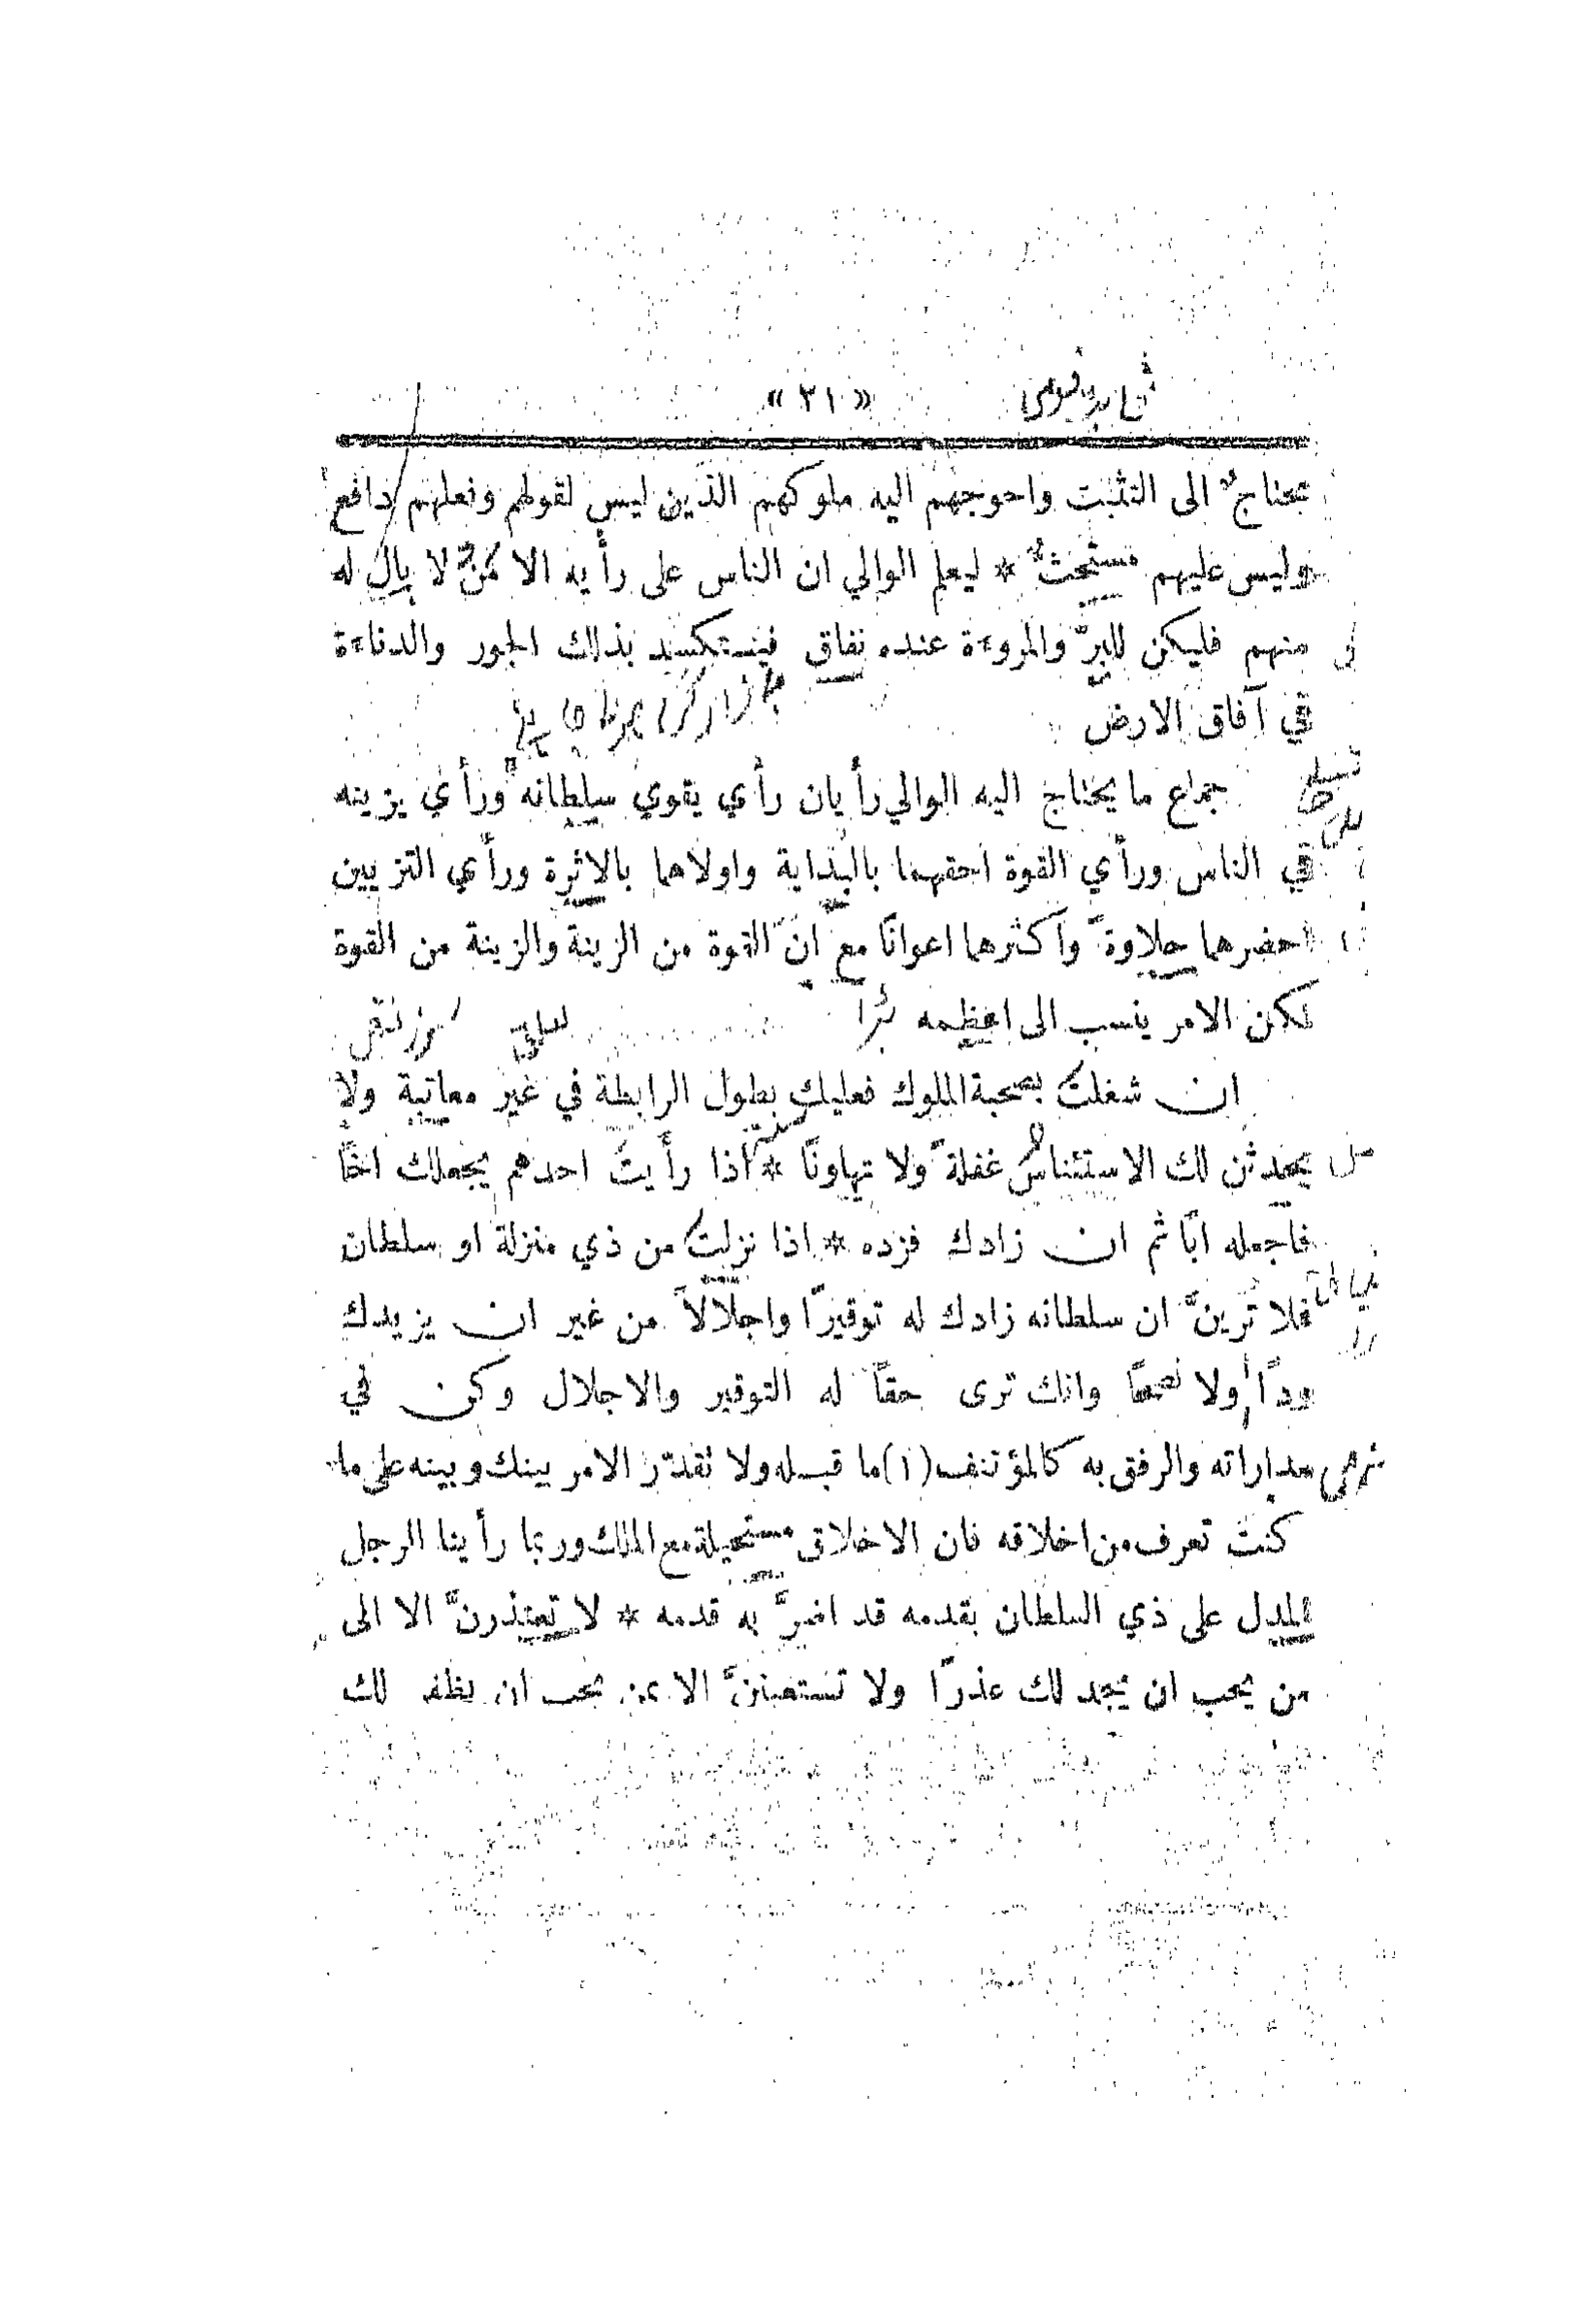 « ٢١ »
محتاجٌ الى التثبت واحوجهم اليه ملوكهم الذين ليس لقولهم وفعلهم دافع
وليس عليهم مستحثٌ * ليعلم الوالي ان الناس على رأيه الا من لا بال له
منهم فليكن للبرّ والمروءة عنده نفاق فيستكسد بذلك الجور والدناءة
في آفاق الارض
جماع ما يحتاج اليه الوالي رأيان رأي يقوي سلطانه ورأي يزينه
في الناس ورأي القوة احقهما بالبداية واولاهما بالاثرة ورأي التزيين
احضرهما حلاوةً واكثرهما اعوانًا مع ان القوة من الزينة والزينة من القوة
لكن الامر ينسب الى اعظمه
ان شغلت بصحبة الملوك فعليك بطول الرابطة في غير معاتبة ولا
يحدثن لك الاستئناس غفلةً ولا تهاونًا * اذا رأيت احدهم يجعلك اخًا
فاجعله ابًا ثم ان زادك فزده * اذا نزلت من ذي منزلة او سلطان
فلا ترينَّ ان سلطانه زادك له توقيرًا واجلالاً من غير ان يزيدك
ودًا ولا نصحًا وانك ترى حقًا له التوقير والاجلال وكن في
مداراته والرفق به كالمؤتنف (١) ما قبله ولا تقدّر الامر بينك وبينه على ما
كنتَ تعرف من اخلاقه فان الاخلاق مستحيلة مع الملك وربما رأينا الرجل
المدل على ذي السلطان بقدمه قد اضرَّ به قدمه * لا تعتذرنَّ الا الى
من يحب ان يجد لك عذرًا ولا تستعيننَّ الا بمن يحب ان يظفر لك